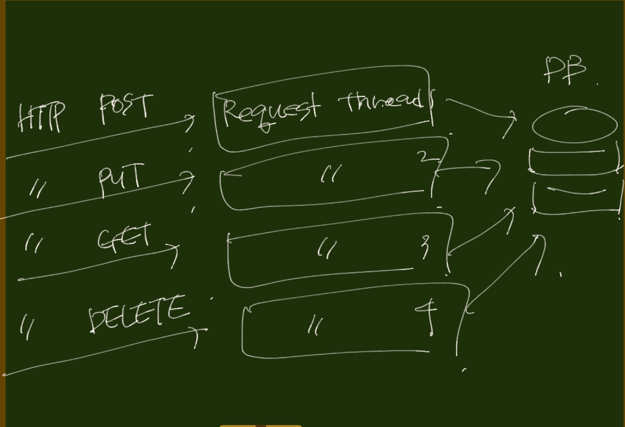 DB
HTTP POST Request thread 1
〃 PUT 〃 2
〃 GET 〃 3
〃 DELETE 〃 4